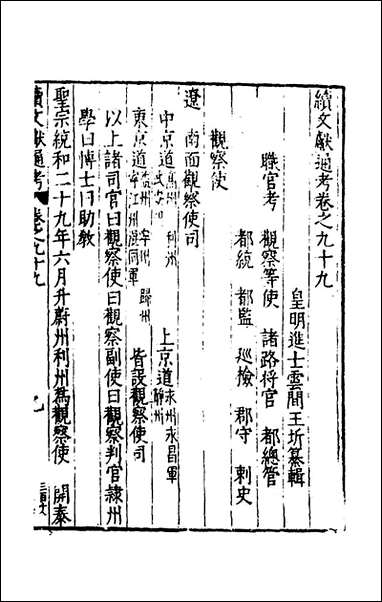 續文獻通考卷之九十九
皇明進士雲間王圻纂輯
職官考 觀察等使 諸路將官 都總管
都統 都監 巡檢 郡守 刺史
觀察使
遼 南面觀察使司
中京道高州 利州 上京道永州永昌軍
東京道 寧州 歸州 寧江州混同軍 皆設觀察使司
以上諸司官曰觀察使曰觀察副使曰觀察判官隷州
學曰博士曰助教
聖宗統和二十九年六月升蔚州利州爲觀察使 開泰
續文獻通考 卷之九十九